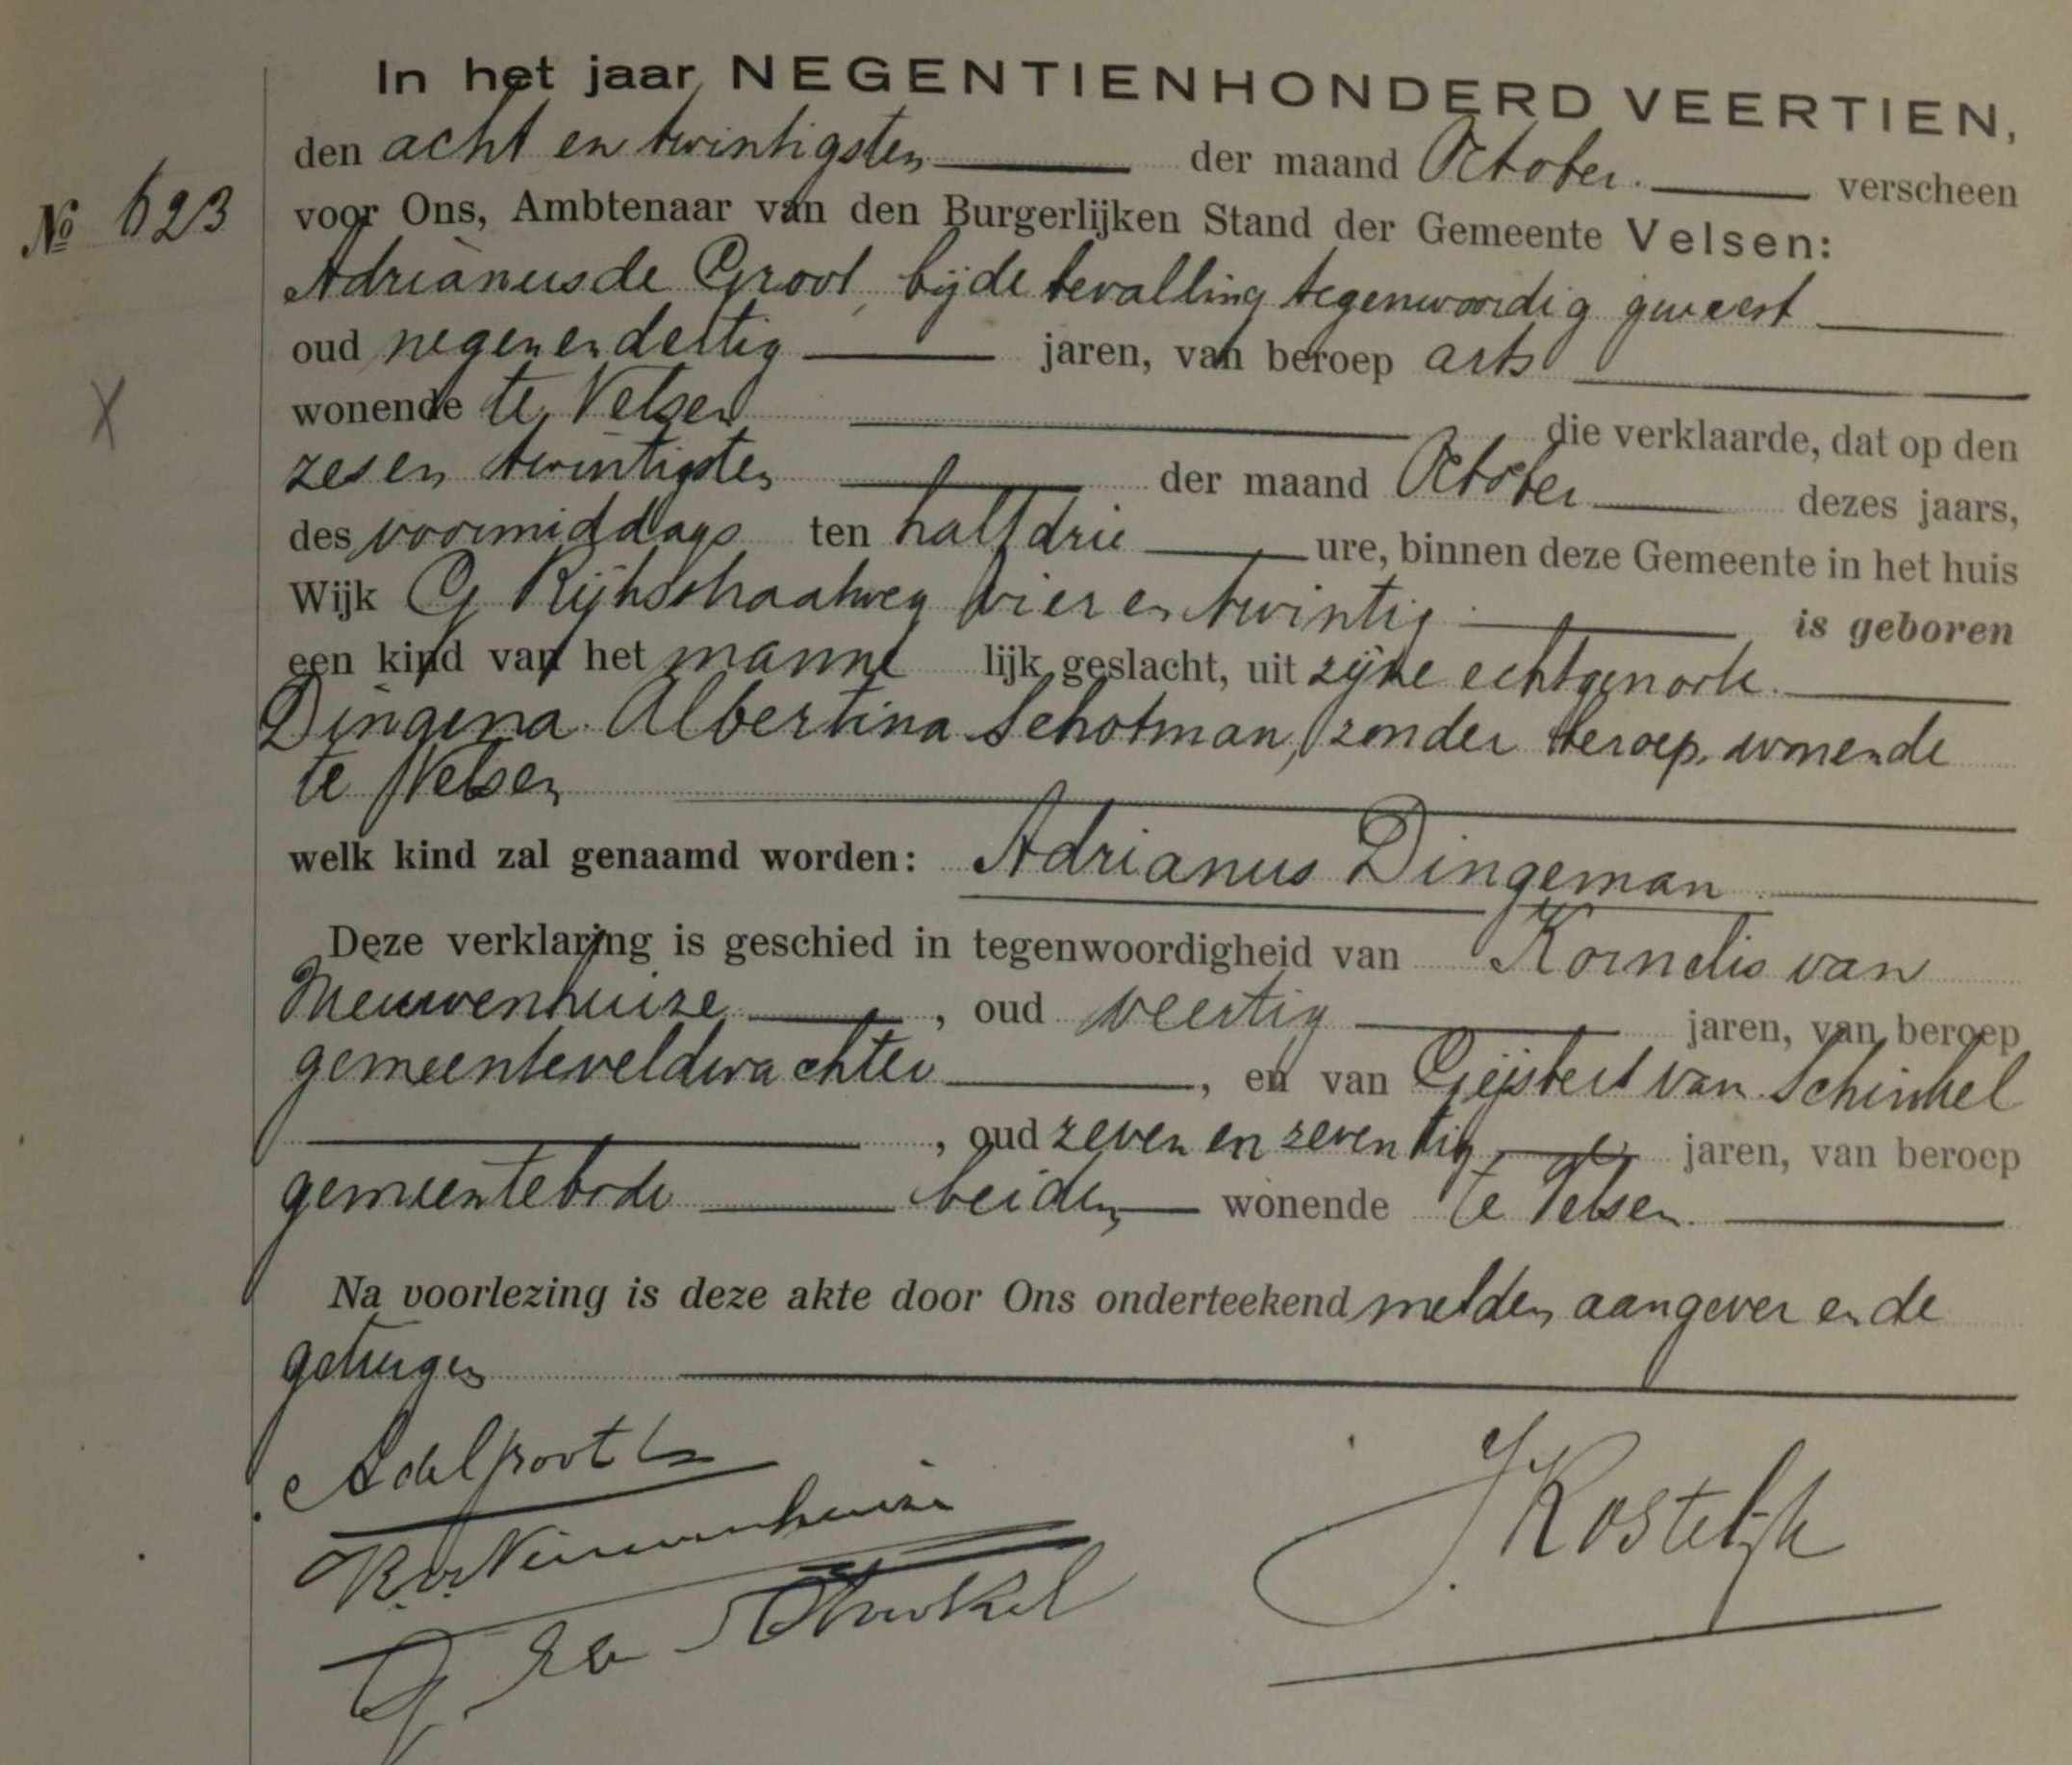 In het jaar NEGENTIENHONDERD VEERTIEN,
den acht en twintigsten der maand October. verscheen
№ 623
voor Ons, Ambtenaar van den Burgerlijken Stand der Gemeente Velsen:
Adrianus de Groot, bij de bevalling tegenwoordig geweest
oud negen en dertig jaren, van beroep arts
X
wonende te Velsen die verklaarde, dat op den
zes en twintigsten der maand October dezes jaars,
des voormiddags ten half drie ure, binnen deze Gemeente in het huis
Wijk G Rijksstraatweg vier en twintig is geboren
een kind van het manne lijk geslacht, uit zijne echtgenoote
Dingena Albertina Schotman, zonder beroep, wonende
te Velsen
welk kind zal genaamd worden: Adrianus Dingeman
Deze verklaring is geschied in tegenwoordigheid van Kornelis van
Nieuwenhuize, oud veertig jaren, van beroep
gemeenteveldwachter, en van Gijsbert van Schinkel
, oud zeven en zeventig jaren, van beroep
gemeentebode beiden wonende te Velsen.
Na voorlezing is deze akte door Ons onderteekend met den aangever en de
getuigen
AdeGroot
K.v. Nieuwenhuize
JKostelijk
G. van Schinkel